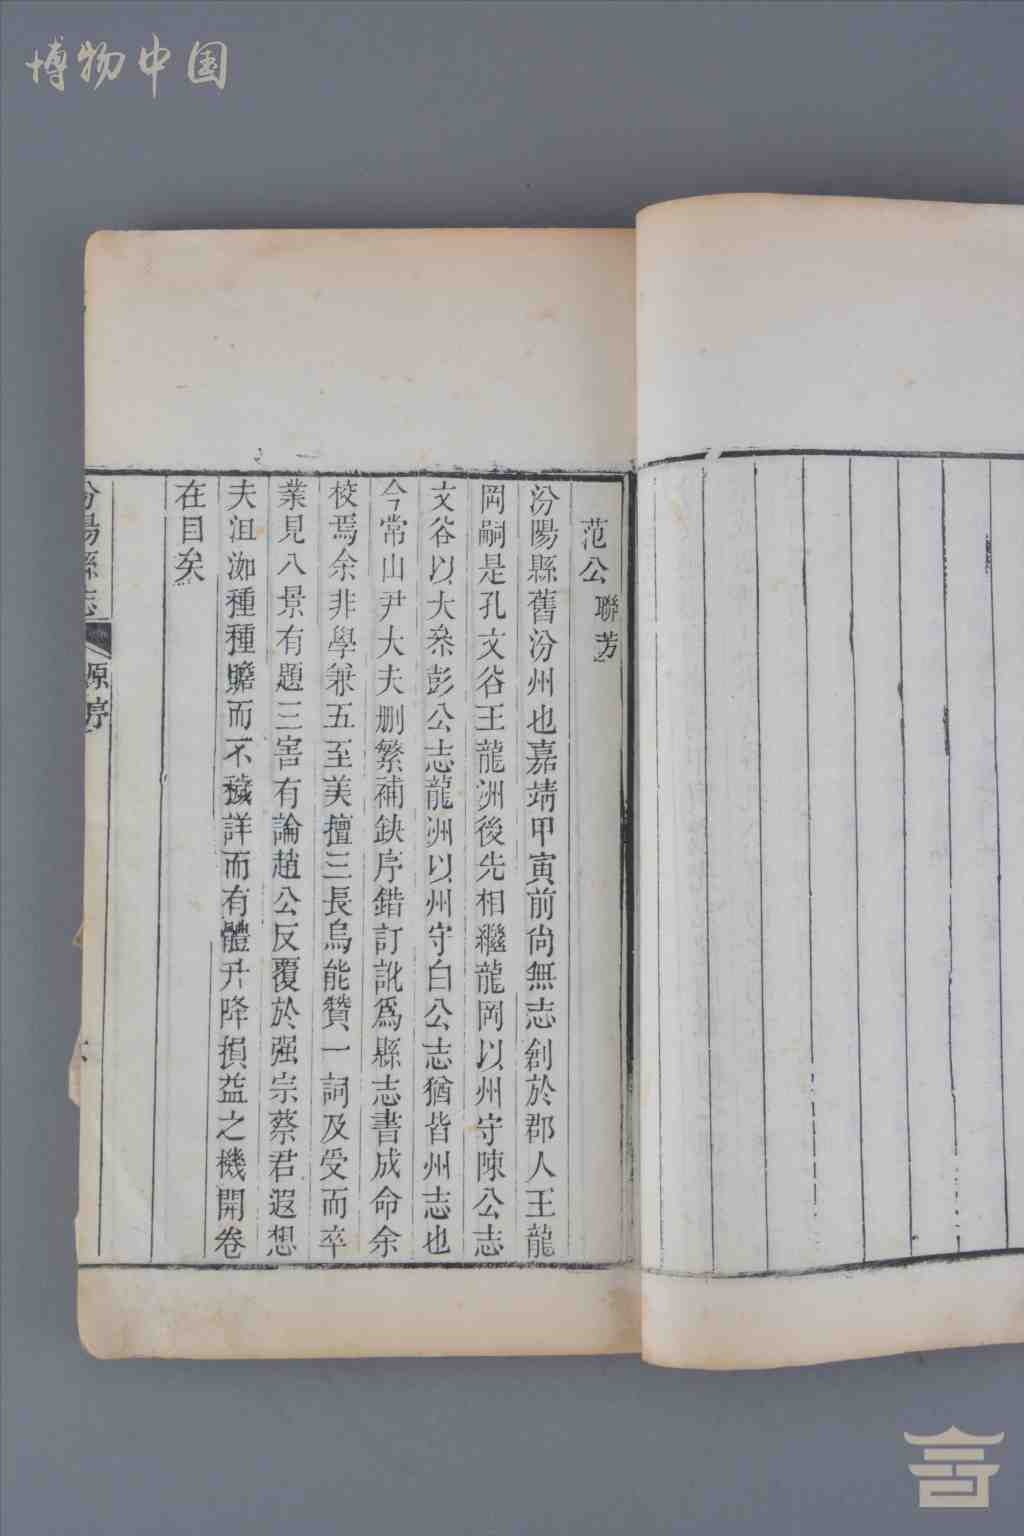 博物中国
范公聯芳
汾陽縣舊汾州也嘉靖甲寅前尙無志創於郡人王龍
岡嗣是孔文谷王龍洲後先相繼龍岡以州守陳公志
文谷以大叅彭公志龍洲以州守白公志猶皆州志也
今常山尹大夫刪繁補鈌序錯訂訛爲縣志書成命余
校焉余非學兼五至美擅三長烏能贊一詞及受而卒
業見八景有題三害有論趙公反覆於强宗蔡君遐想
夫沮洳種種贍而不穢詳而有體升降損益之機開卷
在目矣
汾陽縣志
原序